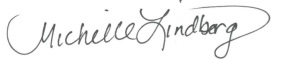 Michelle Lindberg